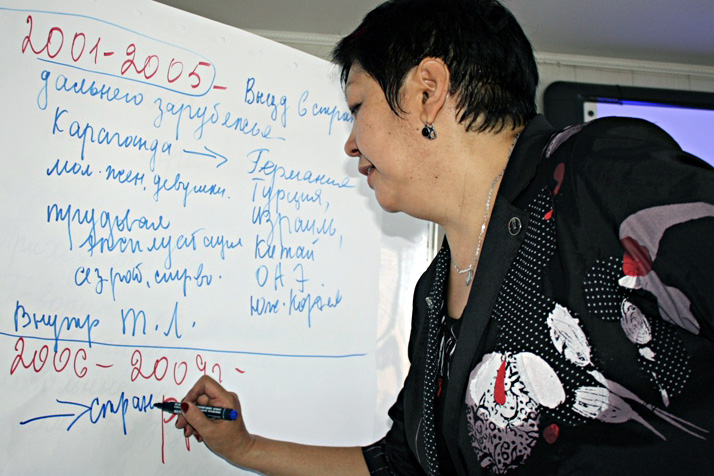 2001-2005- Выезд в стран
дальнего зарубежье
Караганда → Германия
мол. жен, девушки. Турция,
трудовая Израиль,
эксплуатация Китай
сезрот, ОАЭ
Юж. Корея
Внутр Т. Л.
2006-2009г-
→ стран